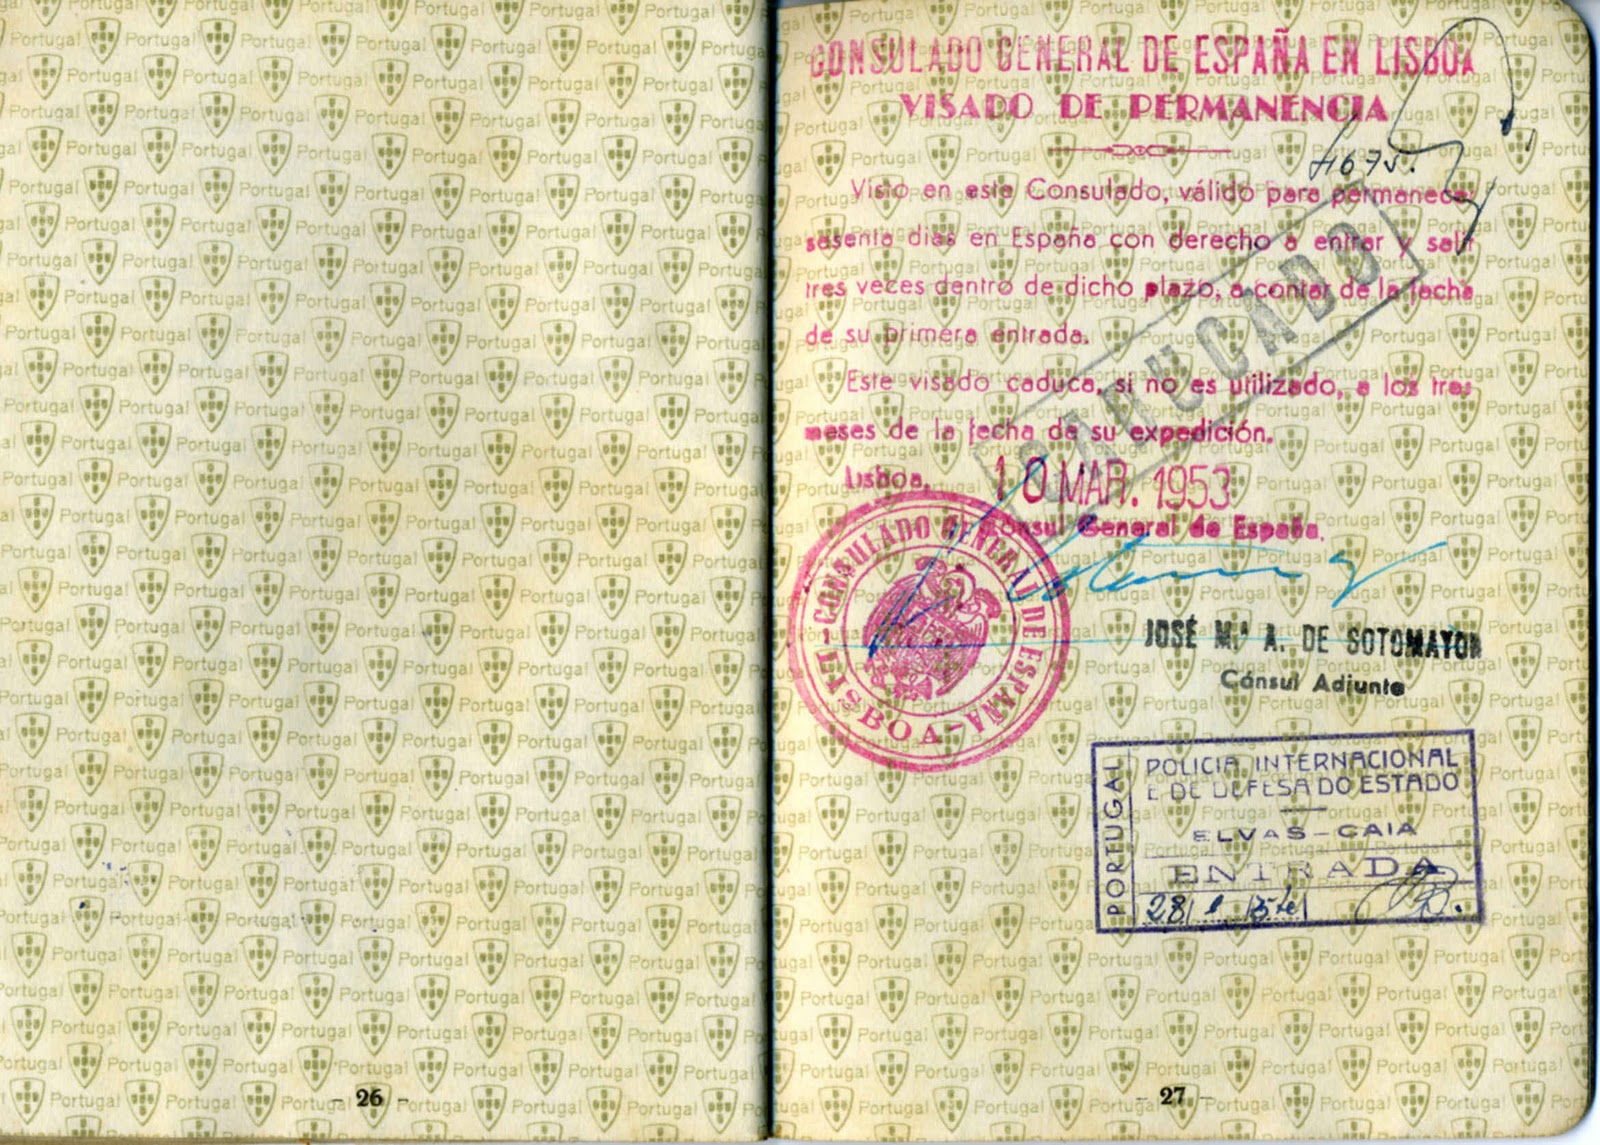 CONSULADO GENERAL DE ESPAÑA EN LISBOA
VISADO DE PERMANENCIA
Visto en este Consulado, válido para permanecer
sesenta dias en España con derecho a entrar y salir
tres veces dentro de dicho plazo, a contar de la fecha
de su primera entrada.
Este visado caduca, si no es utilizado, a los tres
meses de la fecha de su expedición.
CADUCADO
Lisboa, 10 MAR. 1953
Consul General de España.
CONSULADO GENERAL DE ESPAÑA
-LISBOA-
JOSÉ M.ª A. DE SOTOMAYOR
Cónsul Adjunto
PORTUGAL
POLICIA INTERNACIONAL
E DE DEFESA DO ESTADO
ELVAS-CAIA
ENTRADA
28
- 26 -
- 27 -
Portugal